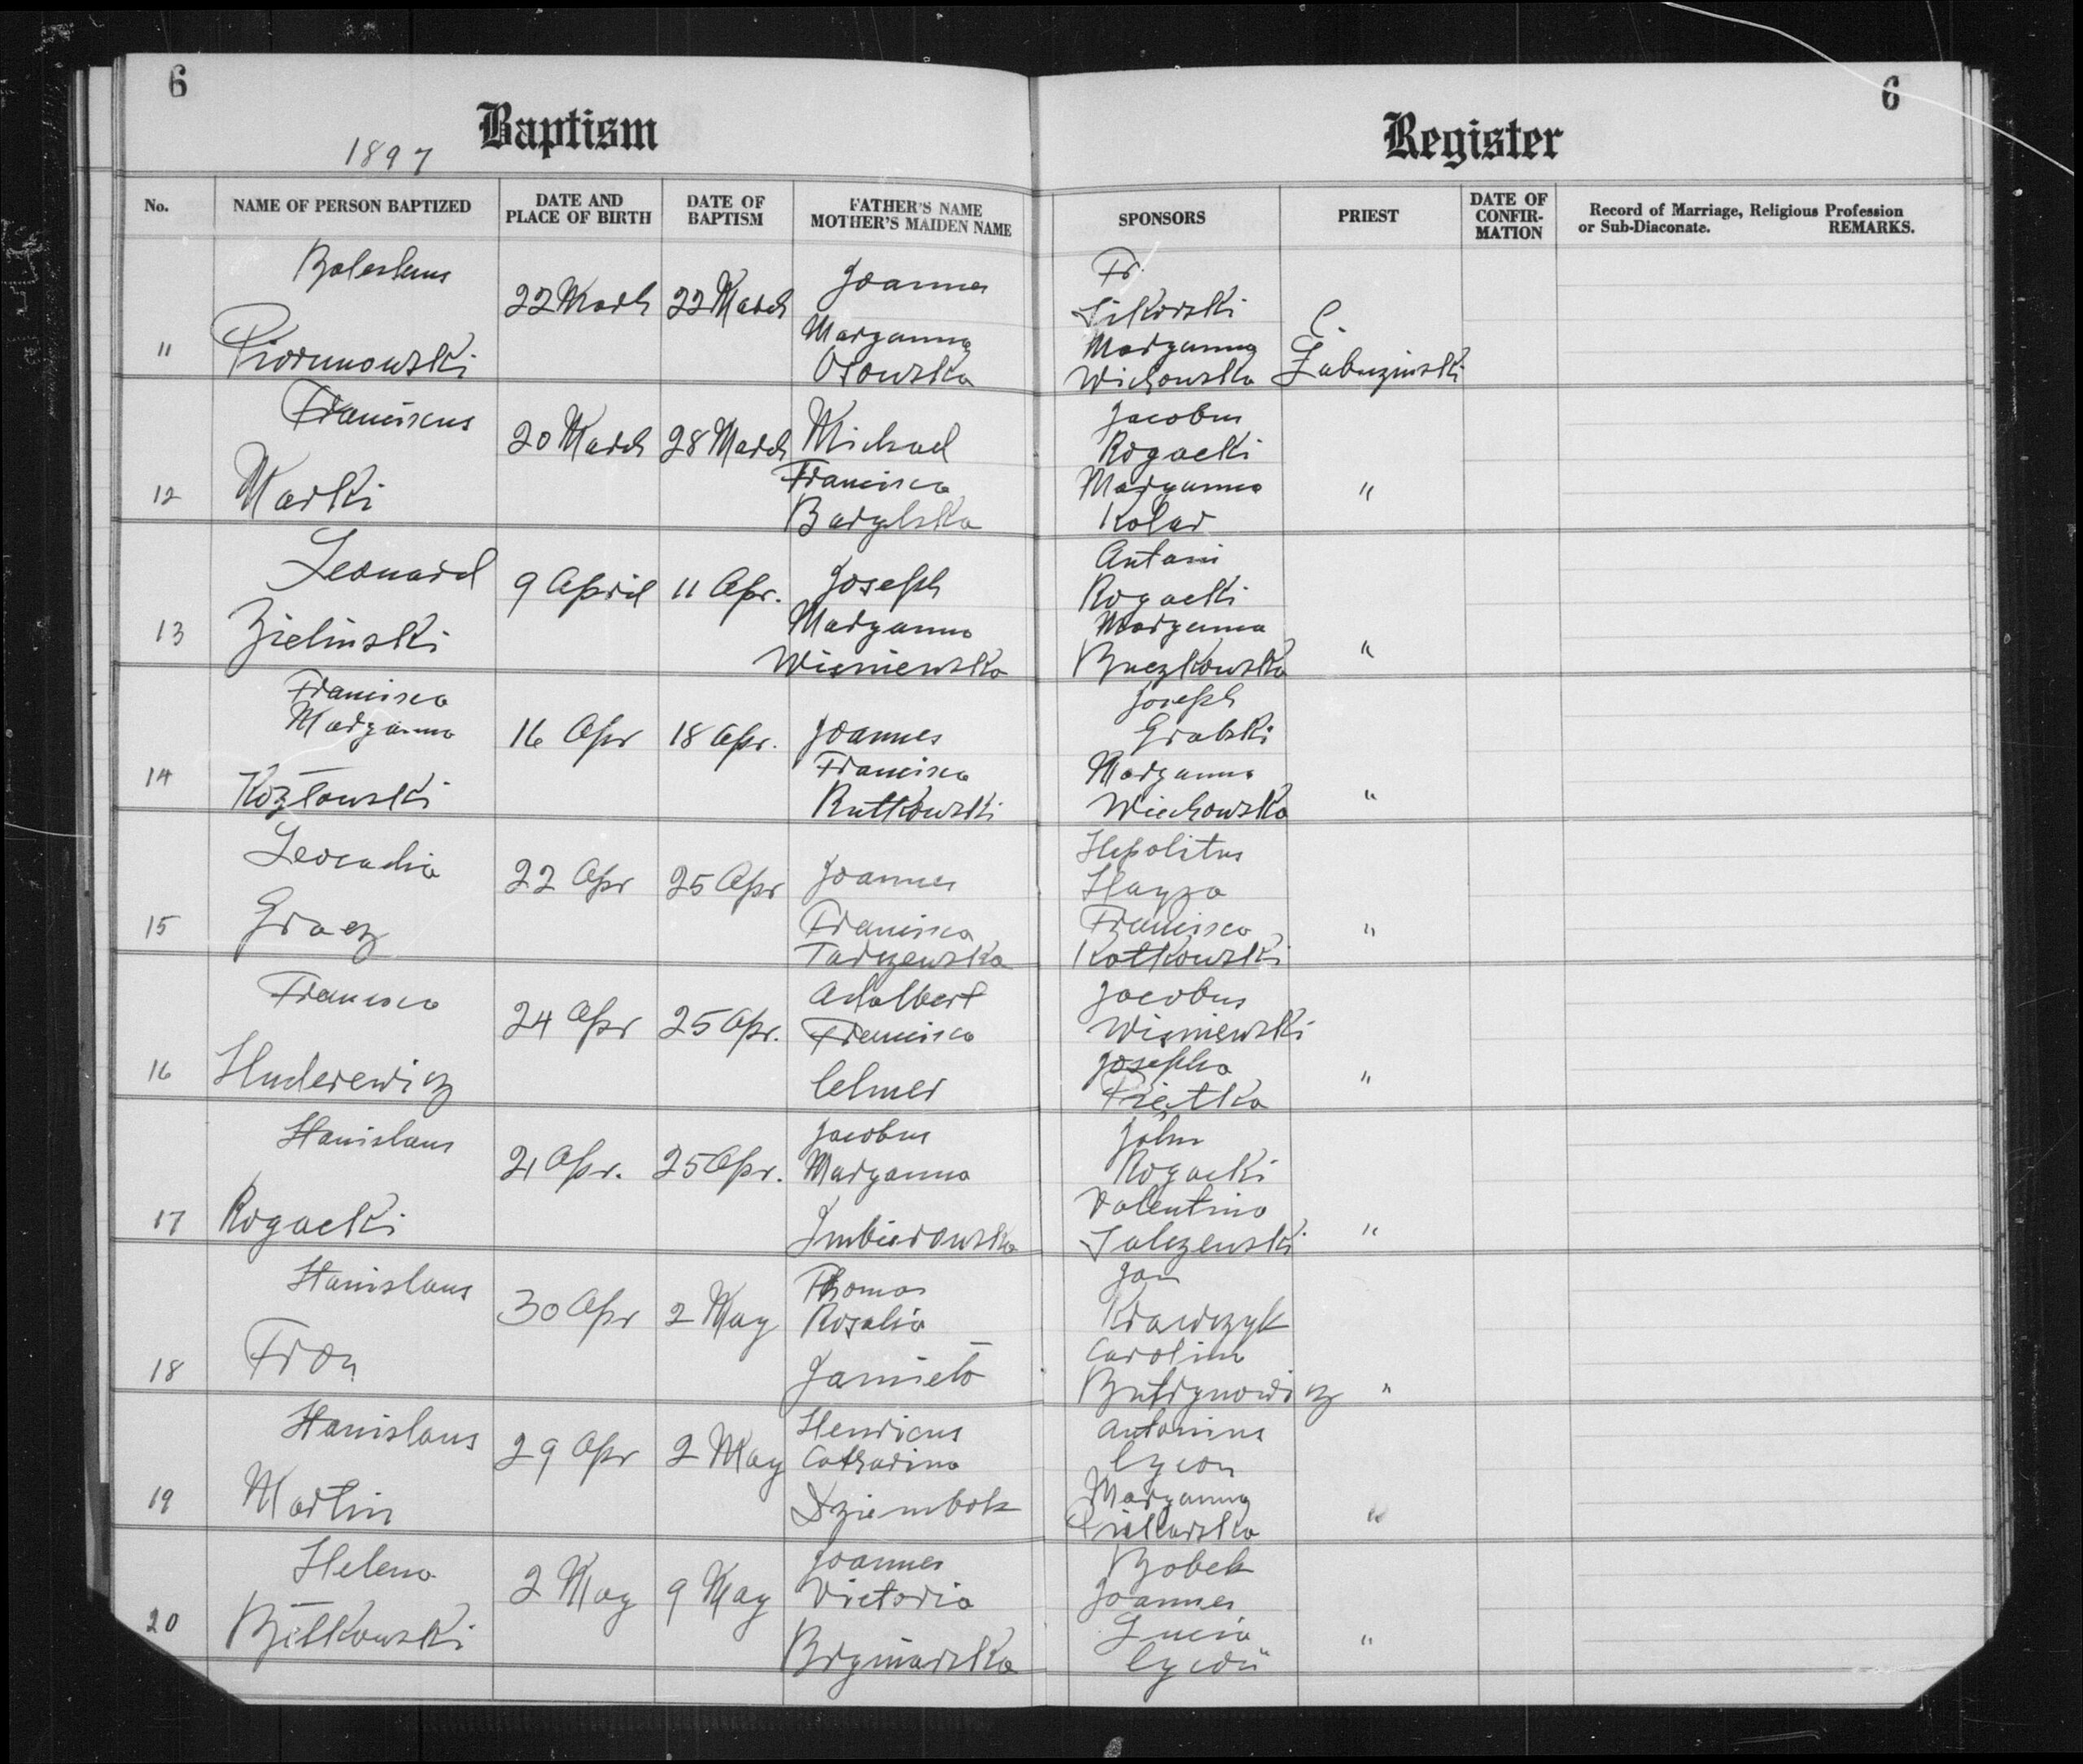 6
6
Baptism
Register
1897
No.
NAME OF PERSON BAPTIZED
DATE AND PLACE OF BIRTH
DATE OF BAPTISM
FATHER'S NAME MOTHER'S MAIDEN NAME
SPONSORS
PRIEST
DATE OF CONFIR-MATION
Record of Marriage, Religious Profession or Sub-Diaconate. REMARKS.
11
Boleslaus
Piorunowski
22 March
22 March
Joannes
Maryanna
Osowska
Fr.
Sikorski
Maryanna
Wichowska
C.
12
Franciscus
Marki
20 March
28 March
Michael
Francisca
Barylska
Jacobus
Rogacki
Maryanna
Kolar
"
13
Leonard
Zielinski
9 April
11 Apr.
Joseph
Maryanna
Wisniewska
Antoni
Rogacki
Maryanna
Buczkowska
"
14
Francisca
Maryanna
Kozłowski
16 Apr
18 Apr.
Joannes
Francisca
Rutkowski
Joseph
Grabski
Maryanna
Wiechowska
"
15
Leocadia
Gracz
22 Apr
25 Apr
Joannes
Francisca
Tarczewska
Hipolitus
Francisca
Kotkowski
"
16
Francisca
Huderewicz
24 Apr
25 Apr.
Adalbert
Francisca
Celmer
Jacobus
Wisniewski
Josepha
Piętka
"
17
Stanislaus
Rogacki
21 Apr.
25 Apr.
Jacobus
Maryanna
Imbierowska
John
Rogacki
Valentino
"
18
Stanislaus
Fron
30 Apr
2 May
Thomas
Rosalia
Jan
Krawczyk
Carolina
Butrynowicz
"
19
Stanislaus
Martin
29 Apr
2 May
Henricus
Catharina
Dziembok
Antonius
Cycon
Maryanna
Piekarska
"
20
Helena
Bětkowski
2 May
9 May
Joannes
Victoria
Bobek
Joannes
Lucia
Cycoń
"